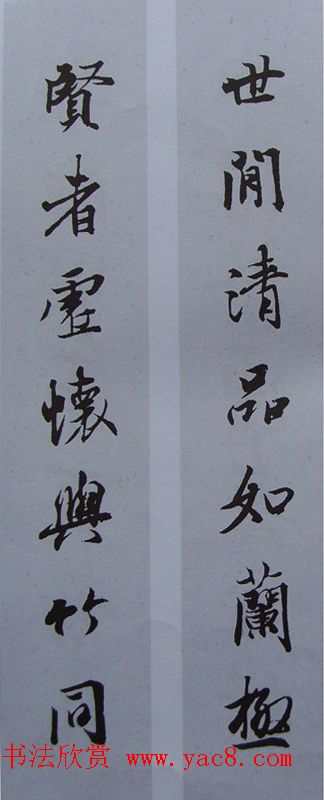 世閒清品如蘭極
賢者虛懷與竹同
书法欣赏 www.yac8.com